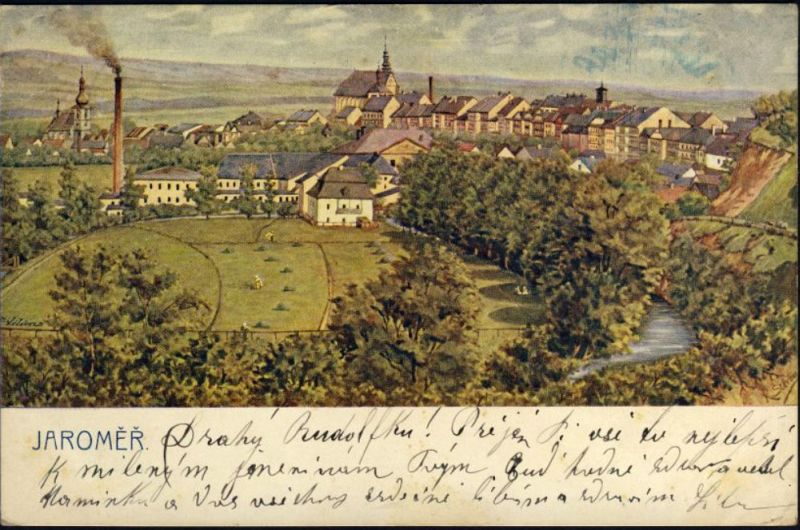 JAROMĚŘ. Drahý Rudolfku! Přeji Ti vše to nejlepší
K mileným jmeninám Tvým. Buď hodně zdráv a vesel
Maminku a Vás všechny srdečně líbám a zdravím